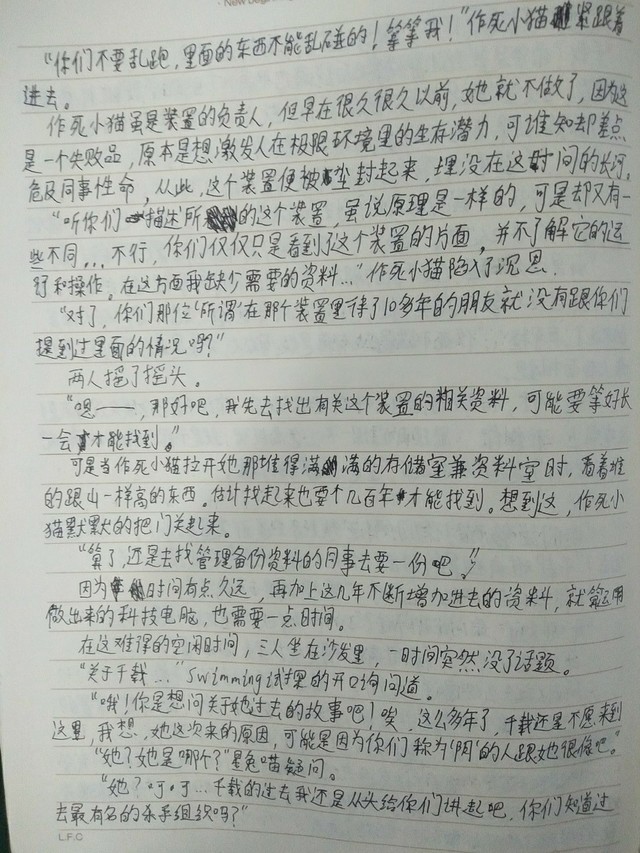 New Begin
"你们不要乱跑，里面的东西不能乱碰的！等等我！"作死小猫紧跟着
进去。
作死小猫虽是装置的负责人，但早在很久很久以前，她就不做了，因为这
是一个失败品，原本是想激发人在极限环境里的生存潜力，可谁知却差点
危及同事性命，从此，这个装置便被尘封起来，埋没在这时间的长河。
"听你们描述所的这个装置，虽说原理是一样的，可是却又有一
些不同…不行，你们仅仅只是看到了这个装置的片面，并不了解它的运
行和操作。在这方面我缺少需要的资料…"作死小猫陷入了沉思。
"对了，你们那位'所谓'在那个装置里待了10多年的朋友就没有跟你们
提到过里面的情况吗？"
两人摇了摇头。
"嗯——，那好吧，我先去找出有关这个装置的相关资料，可能要等好长
一会才能找到。"
可是当作死小猫拉开她那堆得满满的存储室兼资料室时，看着堆
的跟山一样高的东西。估计找起来也要个几百年才能找到。想到这，作死小
猫默默的把门关起来。
"算了，还是去找管理备份资料的同事去要一份吧！"
因为时间有点久远，再加上这几年不断增加进去的资料，就算用
做出来的科技电脑，也需要一点时间。
在这难得的空闲时间，三人坐在沙发里，一时间突然没了话题。
"关于千载…"Swimming试探的开口询问道。
"哦！你是想问关于她过去的故事吧！唉，这么多年了，千载还是不愿来到
这里，我想，她这次来的原因，可能是因为你们称为'阴'的人跟她很像吧。"
"她？她是哪个？"星兔喵疑问。
"她？吖吖…千载的过去我还是从头给你们讲起吧，你们知道过
去最有名的杀手组织吗？"
L.F.C